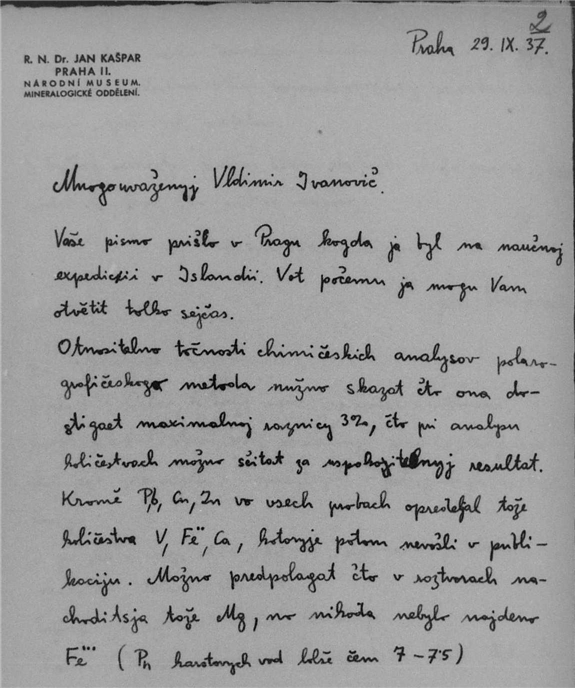 2
Praha 29. IX. 37.
R. N. Dr. JAN KAŠPAR
PRAHA II.
NÁRODNÍ MUSEUM.
MINERALOGICKÉ ODDĚLENÍ.
Mnogouvaženyj Vldimir Ivanovič.
Vaše pismo prišlo v Pragu kogda ja byl na naučnoj
expediciii v Islandii. Vot počemu ja mogu Vam
otvětit tolko sejčas.
Otnositelno točnosti chimičeskich analysov polaro-
grafičeskogo metoda nužno skazat čto ona do-
stigaet maximalnoj raznicy 3%, čto pri analysu
količestvach možno sčitat za uspokojitelnyj resultat.
Kromě Pb, Cu, Zn vo vsech probach opredeljal tože
količestva V, Fe¨, Ca, kotoryje potom nevošli v publi-
kaciju. Možno predpolagat čto v roztvorach na-
choditsja tože Mg, no nikoda nebylo najdeno
Fe··· (PH karstovych vod bolše čem 7 – 7·5)